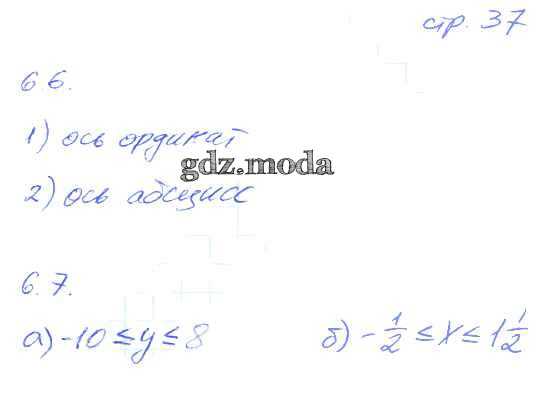 стр. 37
6.6.
1) ось ординат
gdz.moda
2) ось абсцисс
6.7.
а) -10 ≤ y ≤ 8 б) - 1/2 ≤ x ≤ 1 1/2